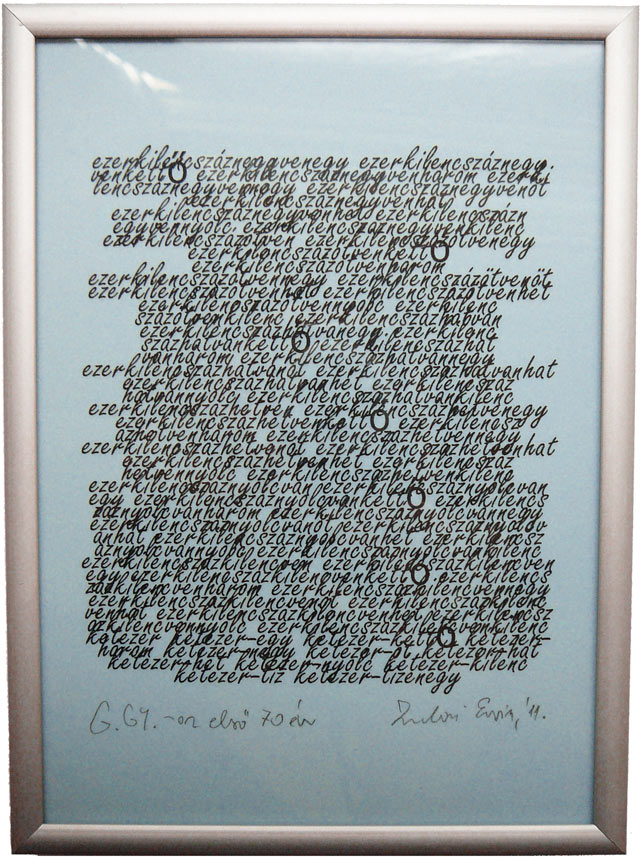 ezerkilencszáznegyvenegy ezerkilencszáznegy-
venkettő ezerkilencszáznegyvenhárom ezerki
lencszáznegyvennégy ezerkilencszáznegyvenöt
ezerkilencszáznegyvenhat
ezerkilencszáznegyvenhét ezerkilencszázn
egyvennyolc ezerkilencszáznegyvenkilenc
ezerkilencszázötven ezerkilencszázötvenegy
ezerkilencszázötvenkettő
ezerkilencszázötvenhárom
ezerkilencszázötvennégy ezerkilencszázötvenöt
ezerkilencszázötvenhat ezerkilencszázötvenhét
ezerkilencszázötvennyolc ezerkilenc
százötvenkilenc ezerkilencszázhatvan
ezerkilencszázhatvanegy ezerkilenc
százhatvankettő ezerkilencszázhat
vanhárom ezerkilencszázhatvannégy
ezerkilencszázhatvanöt ezerkilencszázhatvanhat
ezerkilencszázhatvanhét ezerkilencszáz
hatvannyolc ezerkilencszázhatvankilenc
ezerkilencszázhetven ezerkilencszázhetvenegy
ezerkilencszázhetvenkettő ezerkilencsz
ázhetvenhárom ezerkilencszázhetvennégy
ezerkilencszázhetvenöt ezerkilencszázhetvenhat
ezerkilencszázhetvenhét ezerkilencszáz
hetvennyolc ezerkilencszázhetvenkilenc
ezerkilencszáznyolcvan ezerkilencszáznyolcvan
egy ezerkilencszáznyolcvankettő ezerkilencs
záznyolcvanhárom ezerkilencszáznyolcvannégy
ezerkilencszáznyolcvanöt ezerkilencszáznyolcv
anhat ezerkilencszáznyolcvanhét ezerkilencsz
áznyolcvannyolc ezerkilencszáznyolcvankilenc
ezerkilencszázkilencven ezerkilencszázkilencven
egy ezerkilencszázkilencvenkettő ezerkilencs
zázkilencvenhárom ezerkilencszázkilencvennégy
ezerkilencszázkilencvenöt ezerkilencszázkilenc
venhat ezerkilencszázkilencvenhét ezerkilencsz
ázkilencvennyolc ezerkilencszázkilencvenkilenc
kétezer kétezer-egy kétezer-kettő kétezer-
három kétezer-négy kétezer-öt kétezer-hat
kétezer-hét kétezer-nyolc kétezer-kilenc
kétezer-tíz kétezer-tizenegy
G. GY. - az első 70 év
'11.